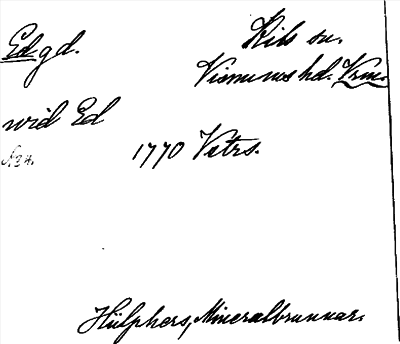 Edgd. Kils sn.
Visnums hd. Vrm.
vid Ed
1770 Vstrs.
Hülphers, Mineralbrunnar.